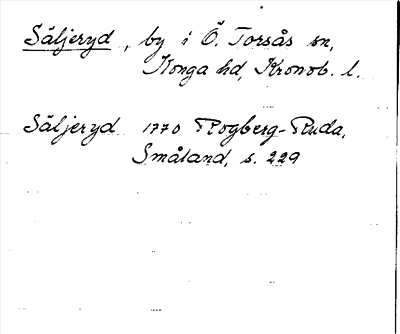 Säljeryd, by i Ö. Torsås sn,
Konga hd, Kronob. l.
Säljeryd 1770 Rogberg-Ruda,
Småland, s. 229